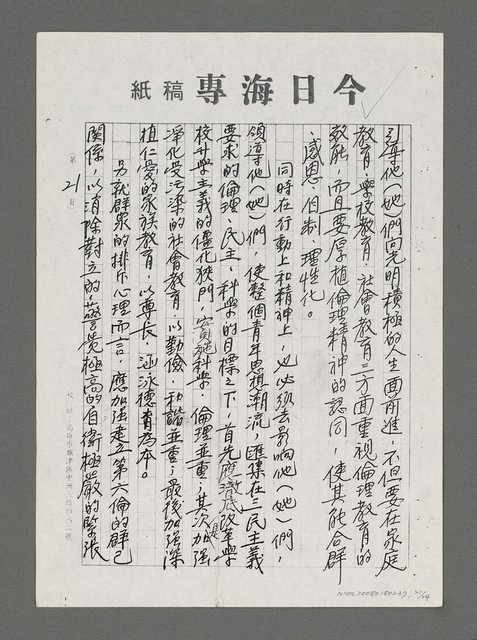 今日海專稿紙
引導他(她)們向光明積極的人生面前進，不但要在家庭
教育、學校教育、社會教育三方面重視倫理教育的
效能，而且要厚植倫理精神的認同，使其能合群
、感恩、自制、理性化。
同時在行動上和精神上，也必須去影响他(她)們，
領導他(她)們，使整個青年思想潮流，匯集在三民主義
要求的倫理、民主、科學的目標之下，首先應澈底改革學
校升學主義的僵化狹門，實施科學、倫理並重；其次加強
淨化受污染的社會教育，以勤儉、和諧並重；最後加強深
植仁愛的家族教育，以尊長、涵泳德育為本。
另就群眾的排斥心理而言，應加強建立第六倫的群己
關係，以消除對立的、警覺極高的自衛極嚴的緊張
第21頁
校址：高雄市旗津區中洲
NMTL20080180237, 21/24